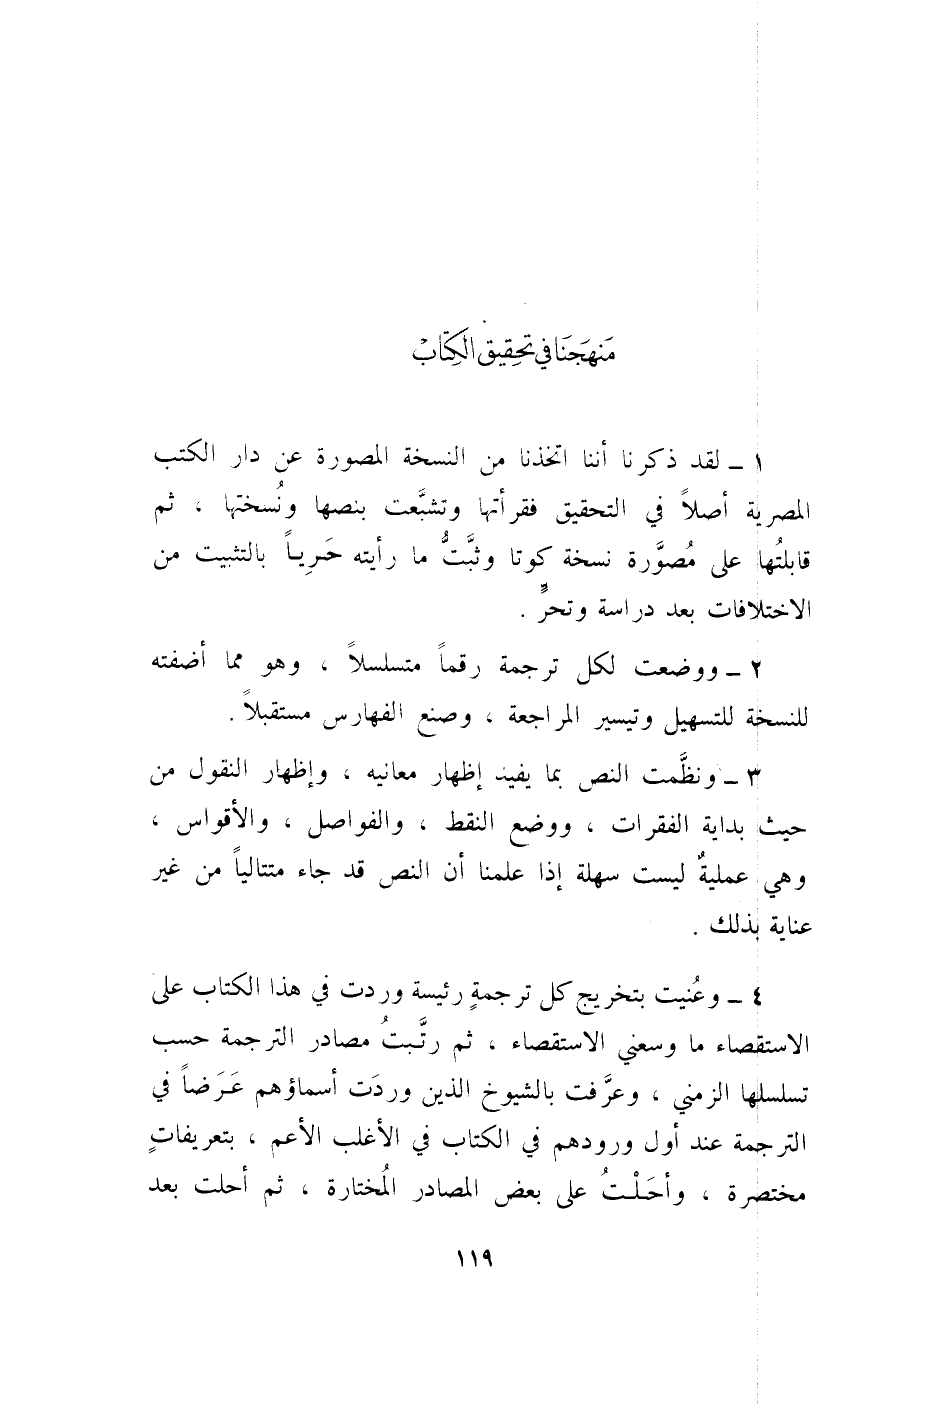 مَنهَجَنَا في تحقِيق الكِتابْ
١ ــ لقد ذكرنا أننا اتخذنا من النسخة المصورة عن دار الكتب
المصرية أصلاً في التحقيق فقرأتها وتشبَّعت بنصها ونُسختها ، ثم
قابلتُها على مُصوَّرة نسخة كوتا وثبَّتُّ ما رأيته حَرِياً بالتثبيت من
الاختلافات بعد دراسة وتحرٍّ .
٢ ــ ووضعت لكل ترجمة رقماً متسلسلاً ، وهو مما أضفته
للنسخة للتسهيل وتيسير المراجعة ، وصنع الفهارس مستقبلاً .
٣ ــ ونظَّمت النص بما يفيد إظهار معانيه ، وإظهار النقول من
حيث بداية الفقرات ، ووضع النقط ، والفواصل ، والأقواس ،
وهي عمليةٌ ليست سهلة إذا علمنا أن النص قد جاء متتالياً من غير
عناية بذلك .
٤ ــ وعُنيت بتخريج كل ترجمةٍ رئيسة وردت في هذا الكتاب على
الاستقصاء ما وسعني الاستقصاء ، ثم رتَّبتُ مصادر الترجمة حسب
تسلسلها الزمني ، وعرَّفت بالشيوخ الذين وردَت أسماؤهم عَرَضاً في
الترجمة عند أول ورودهم في الكتاب في الأغلب الأعم ، بتعريفاتٍ
مختصرة ، وأحَلْتُ على بعض المصادر المُختارة ، ثم أحلت بعد
١١٩